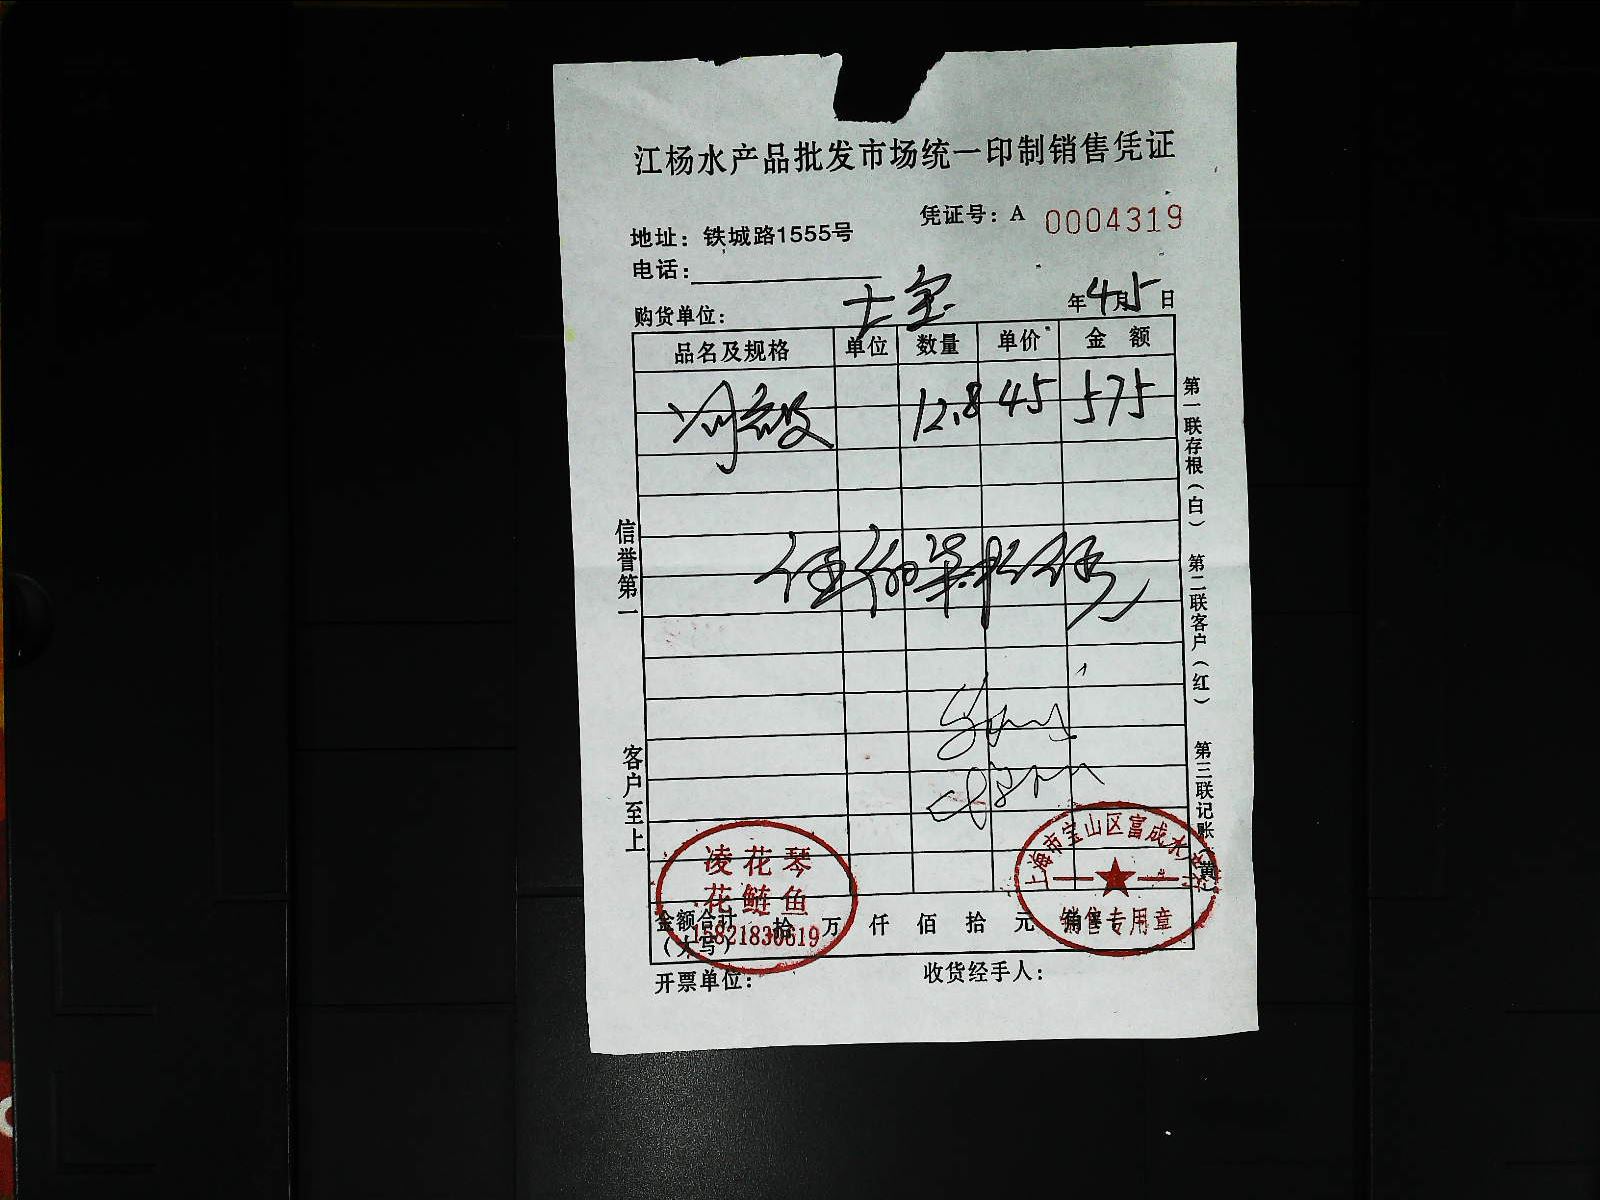 江杨水产品批发市场统一印制销售凭证
凭证号：A 0004319
地址：铁城路1555号
电话：
购货单位：
年4月5日
品名及规格 单位 数量 单价 金额
12.8 45 575
信誉第一
客户至上
第一联存根（白） 第二联客户（红） 第三联记账（黄）
凌花琴
花鲢鱼
15821830619
上海市宝山区富成水
销售专用章
金额合计（大写） 拾 万 仟 佰 拾 元 角
开票单位： 收货经手人：